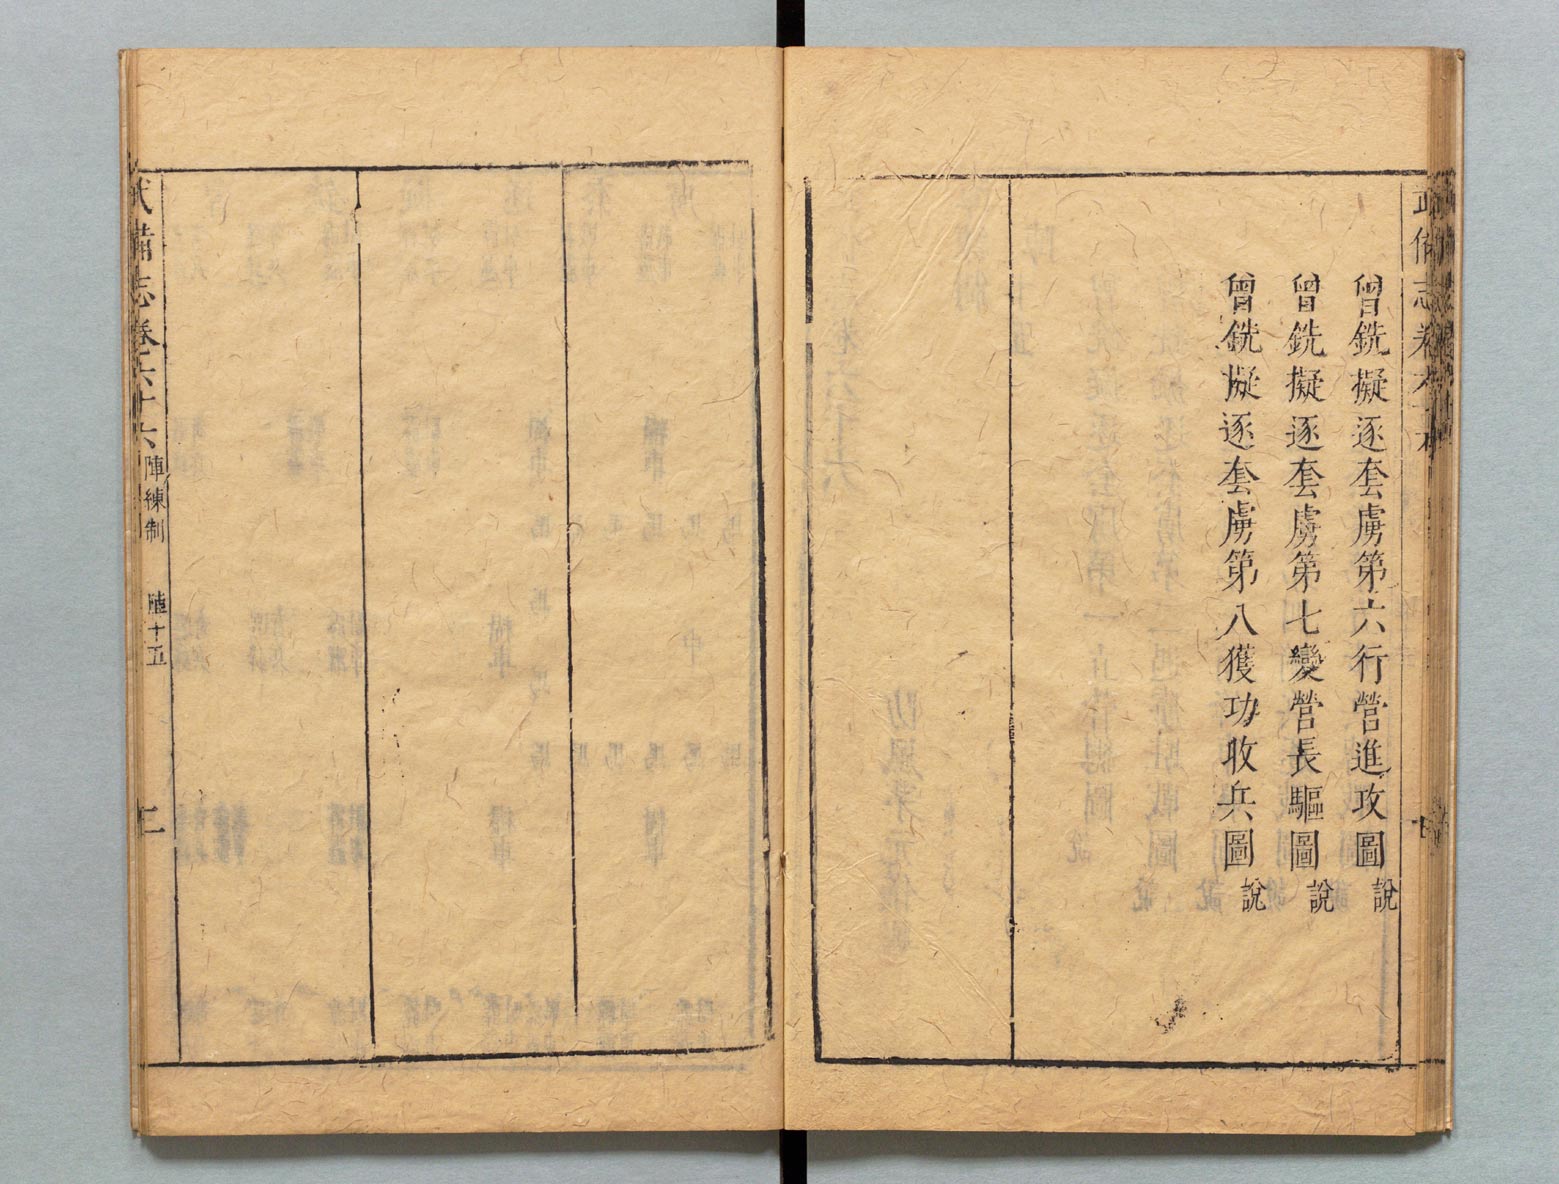 曾銑擬逐套虜第六行營進攻圖說
曾銑擬逐套虜第七變營長驅圖說
曾銑擬逐套虜第八獲功收兵圖說
武備志卷六十六 陣練制 陣十五 二